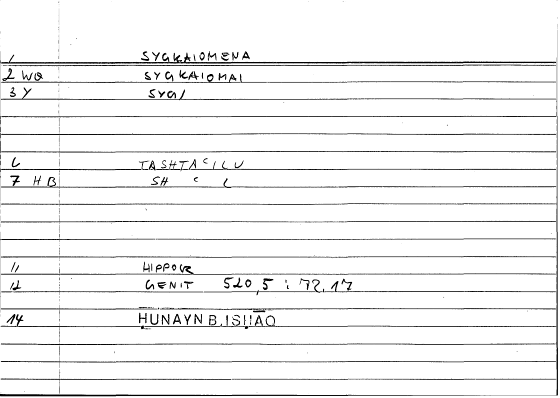 1 SYGKAIOMENA
2 WO SYGKAIOMAI
3 Y SYG/
6 TASHTAʿILU
7 HB SH ʿ L
11 HIPPOKR
12 GENIT 520,5 : 72,17
14 ḤUNAYN B.ISḤĀQ